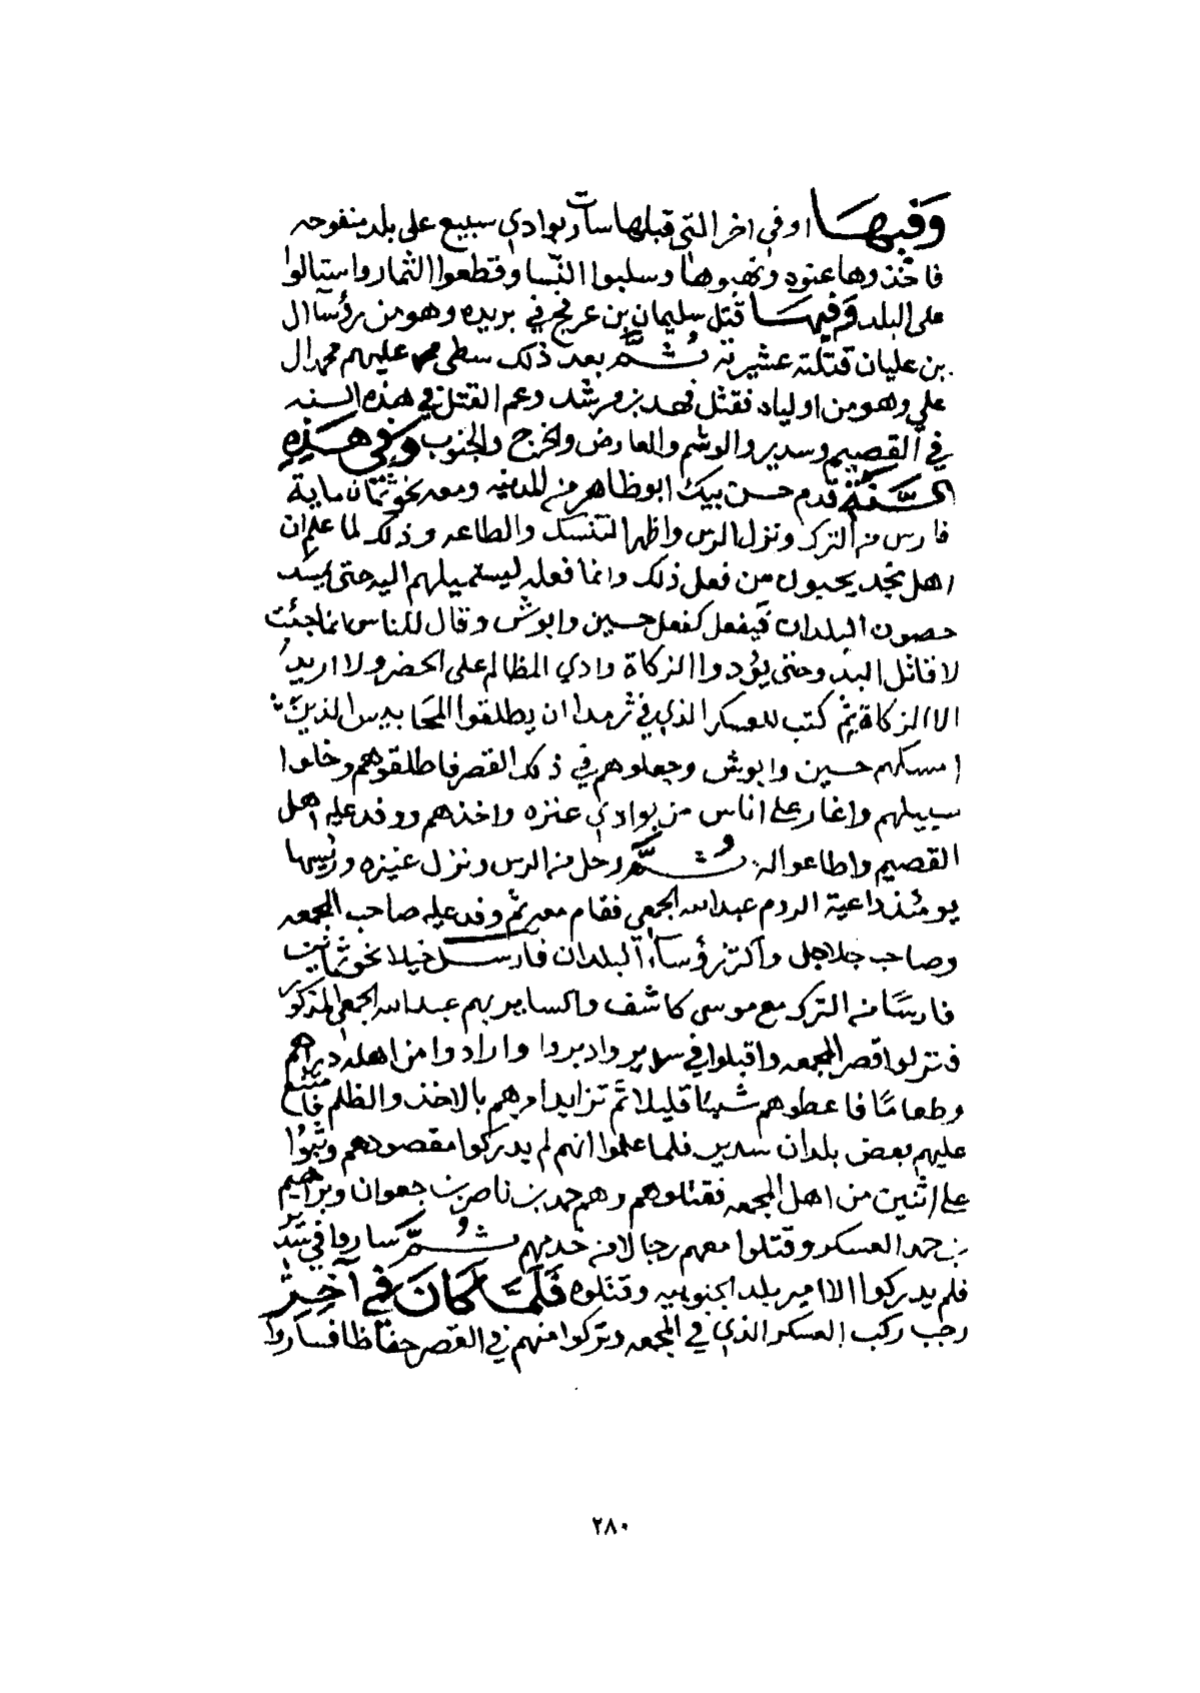 وفيها اوفي اخر التي قبلها سارت بوادي سبيع على بلد منفوحه
فاخذوها عنوه ونهبوها وسلبوا النسا وقطعوا الثمار واستالوا
على البلد وفيها قتل سليمان بن عرفج في بريده وهو من رؤسآ ال
بن عليان قتلته عشيرته ثم بعد ذلك سطى عليهم محمد ال
علي وهو من اولياه فقتل فهد بن مرشد وعم القتل في هذه السنه
في القصيم وسدير والوشم والعارض والخرج والجنوب وفي هذه
السنة قدم حسن بيك ابو ظاهر من المدينه ومعه نحو ثمان ماية
فارس من الترك ونزل الرس واظهر التنسك والطاعه وذلك لما علم ان
اهل نجد يحبون من فعل ذلك وانما فعله ليستميلهم اليه حتى
حصون البلدان فيفعل كفعل حسين وابوش وقال للناس انما جئت
لا قاتل البدو حتى يؤدوا الزكاة وادي المظالم على الحضر ولا اريد
الا الزكاة ثم كتب للعسكر الذي في ثرمدا ان يطلقوا المحابيس الذين
امسكهم حسين وابوش وجعلوهم في ذلك القصر فاطلقوهم وخلوا
سبيلهم واغار على اناس من بوادي عنزه واخذهم ووفد عليه اهل
القصيم واطاعوا له ثم رحل من الرس ونزل عنيزه ورئيسها
يومئذ داعية الروم عبدالله الجمعي فقام معه ثم وفد عليه صاحب المجمعه
وصاحب جلاجل واكثر رؤساء البلدان فارسل خيلا نحو ثمانين
فارسًا من الترك مع موسى كاشف والساير بهم عبدالله الجمعي المذكور
فنزلوا قصر المجمعه واقبلوا في سدير وادبروا وارادوا من اهله دراهم
وطعامًا فاعطوهم شيئا قليلا ثم تزايد امرهم بالاخذ والظلم فامتنع
عليهم بعض بلدان سدير فلما علموا انهم لم يدركوا مقصودهم وثبوا
على اثنين من اهل المجمعه فقتلوهم وهم حمد بن ناصر بن جعوان وبراهيم
بن حمد العسكر وقتلوا معهم رجالا من خدمهم ثم ساروا في سدير
فلم يدركوا الا امير بلد الجنوبيه وقتلوه فلما كان في آخر
رجب ركب العسكر الذي في المجمعه وتركوا منهم في القصر حفاظا فساروا
٢٨٠